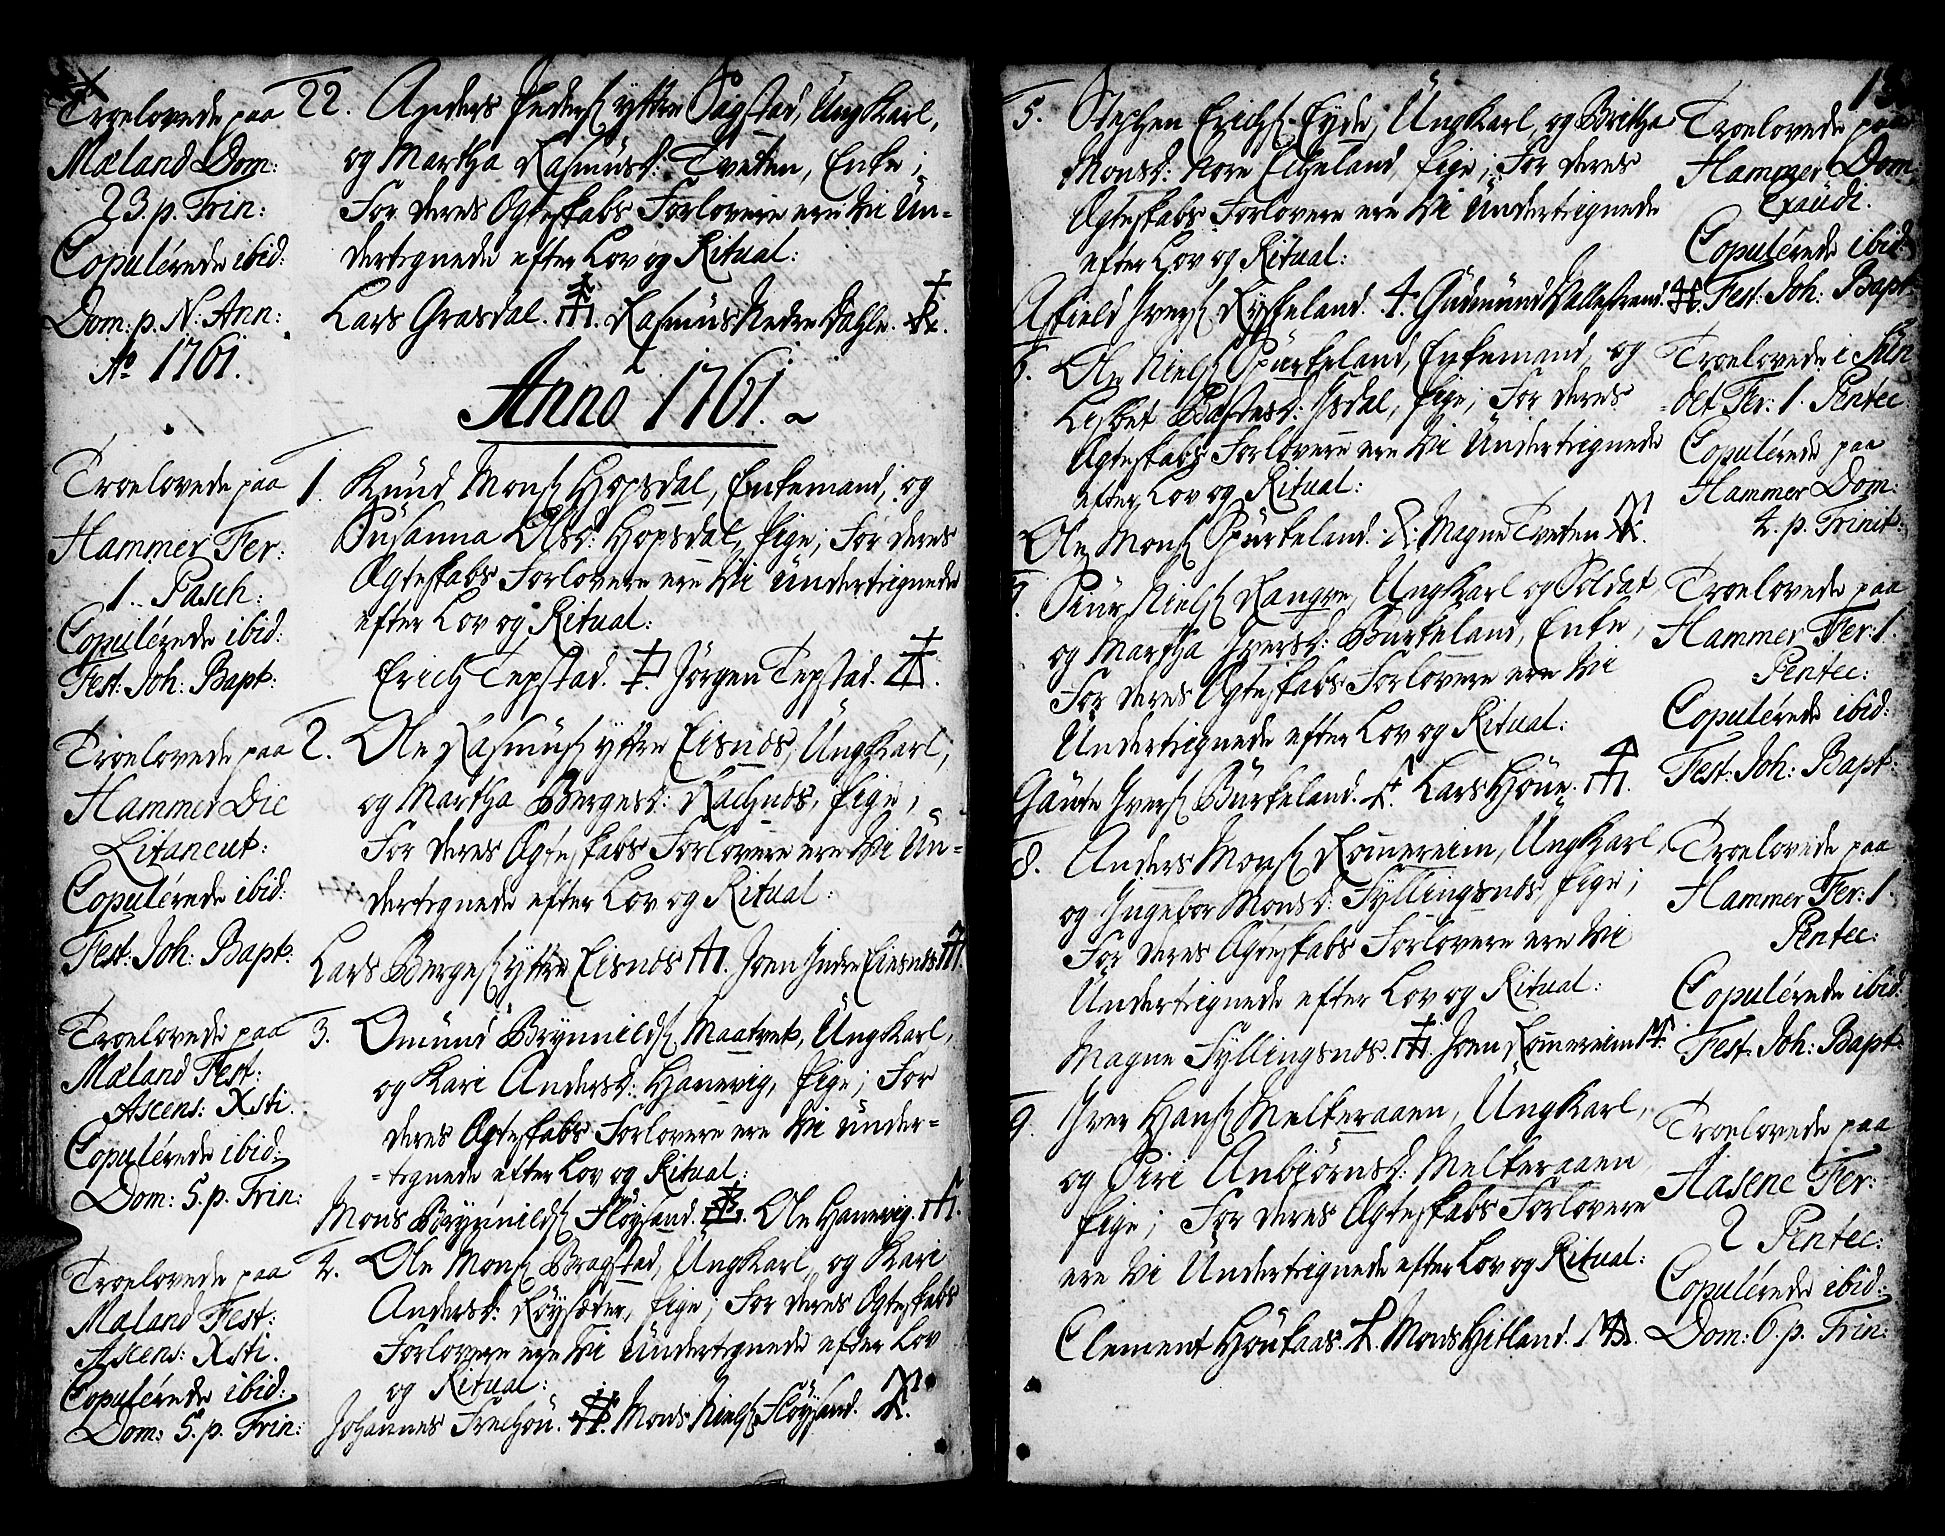 Troelovede paa
Mæland Dom:
23. p. Trin:
Copulérede ibid:
Dom: p. N: Ann:
Aº 1761.
22. Anders Peders: yttre Sagstad, Ung Karl,
og Martha Rasmusd: Tveten, Enke;
For deres Ægteskabs Forlovere ere Vi Un-
dertegnede efter Lov og Ritual:
Lars Grasdal. Rasmus Nedre Dahle.
Anno 1761.
Troelovede paa
Hammer Fer:
1. Pasch:
Copulérede ibid:
Fest: Joh: Bapt:
1. Knud Mons: Hopsdal, Enkemand, og
Susanna Olsd: Hopsdal, Pige; For deres
Ægteskabs Forlovere ere Vi Undertegnede
efter Lov og Ritual:
Erich Tepstad. Jörgen Tepstad.
Troelovede paa
Hammer Die
Litaneut:
Copulérede ibid:
Fest: Joh: Bapt:
2. Ole Rasmus: yttre Eisnös, Ung Karl,
og Martha Bergesd: Rachnös, Pige;
For deres Ægteskabs Forlovere ere Vi Un-
dertegnede efter Lov og Ritual:
Lars Berges: yttre Eisnös. Joen Indre Eiesnös.
Troelovede paa
Mæland Fest:
Ascens: Xsti.
Copulérede ibid:
Dom: 5. p. Trin:
3. Omund Brynnilds: Maatvet, Ung Karl,
og Kari Andersd: Hanevig, Pige; For
deres Ægteskabs Forlovere ere Vi Under-
-tegnede efter Lov og Ritual:
Mons Brynnilds: Flöysand. Ole Hanevig.
Troelovede paa
Mæland Fest:
Ascens: Xsti.
Copulérede ibid:
Dom: 5. p. Trin:
4. Ole Mons: Bragstad, Ung Karl, og Kari
Andersd: Röysæter, Pige; For deres Ægteskabs
Forlovere ere Vi Undertegnede efter Lov
og Ritual:
Johannes Frechou. Mons Niels: Flöysand.
5. Stephen Erichs: Eyde, Ung Karl, og Brittha
Monsd: Nore Eicheland, Pige; For deres
Ægteskabs Forlovere ere Vi Undertegnede
efter Lov og Ritual:
Asfield Ivers: Ryskeland. Gudmund Vallestrand.
Troelovede paa
Hammer Dom:
Exaudi.
Copulérede ibid:
Fest: Joh: Bapt:
6. Ole Niels: Spurkeland, Enkemand, og
Lisbet Isdal, Pige; For deres
Ægteskabs Forlovere ere Vi Undertegnede
efter Lov og Ritual:
Ole Mons: Spurkeland. Magne Tveten.
Troelovede i Hin-
det Fer: 1. Pentec:
Copulérede paa
Hammer Dom:
4. p. Trinit:
7. Siur Niels: Rangøe, Ung Karl og Soldat,
og Martha Iversd: Burkeland, Enke,
For deres Ægteskabs Forlovere ere Vi
Undertegnede efter Lov og Ritual:
Gaute Ivers: Burkeland. Lars Höue.
Troelovede paa
Hammer Fer: 1.
Pentec:
Copulérede ibid:
Fest: Joh: Bapt:
8. Anders Mons: Romereim, Ung Karl,
og Ingebor Monsd: Syllingsnös, Pige;
For deres Ægteskabs Forlovere ere Vi
Undertegnede efter Lov og Ritual:
Magne Syllingsnös. Joen Romereim.
Troelovede paa
Hammer Fer: 1.
Pentec:
Copulérede ibid:
Fest: Joh: Bapt:
9. Iver Hans: Melkeraaen, Ung Karl,
og Siri Anbjörnsd: Melkeraaen
Pige; For deres Ægteskabs Forlovere
ere Vi Undertegnede efter Lov og Ritual:
Clement Höukaas. Mons Hitland.
Troelovede paa
Aasene Fer:
2 Pentec:
Copulérede ibid:
Dom: 6. p. Trin: